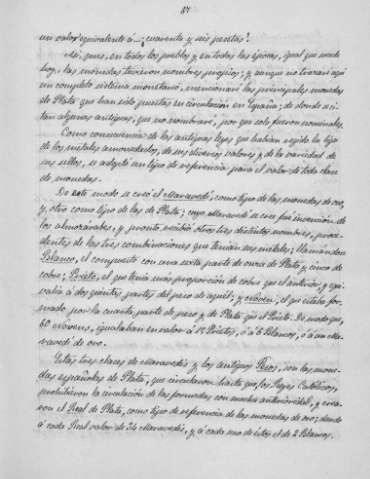 87
un valor equivalente á... ¡cuarenta y seis pesetas!
Así, pues, en todos los pueblos y en todas las épocas, igual que sucede
hoy, las monedas tuvieron nombres propios; y aunque no trazaré aquí
un completo sistema monetario, mencionaré las principales monedas
de Plata que han sido puestas en circulación en España; de donde se ci-
tan algunas antiguas, que no nombraré, por que solo fueron nominales.
Como consecuencia de las antiguas leyes que habían regido la liga
de los metales amonedados, de sus diversos valores y de la variedad de
sus sellos, se adoptó un tipo de referencia para el valor de toda clase
de monedas.
De este modo se creó el Maravedí, como tipo de las monedas de oro,
y otro como tipo de las de Plata; cuyo Maravedí se cree fué invención de
los almorávides, y pronto recibió otros tres distintos nombres, proce-
dentes de las tres combinaciones que tenían sus metales; llamándose
Blanco, el compuesto con una sexta parte de onza de Plata y cinco de
cobre; Prieto, el que tenía más proporción de cobre que el anterior, y equi-
valía á dos quintas partes del peso de aquel; y Noven, el que estaba for-
mado por la cuarta parte de peso y de Plata que el Prieto. De modo que,
60 Novenes, igualaban en valor á 15 Prietos, ó á 6 Blancos, ó á un Ma-
ravedí de oro.
Estas tres clases de Maravedís y los antiguos Pesos, son las mone-
das españolas de Plata, que circularon hasta que los Reyes Católicos,
prohibieron la circulación de las formadas con mucha anterioridad, y crea-
ron el Real de Plata, como tipo de referencia de las monedas de oro; dando
á cada Real valor de 34 Maravedís, y á cada uno de estos el de 2 Blancas.